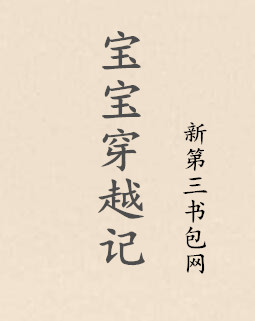 宝宝穿越记
新第三书包网